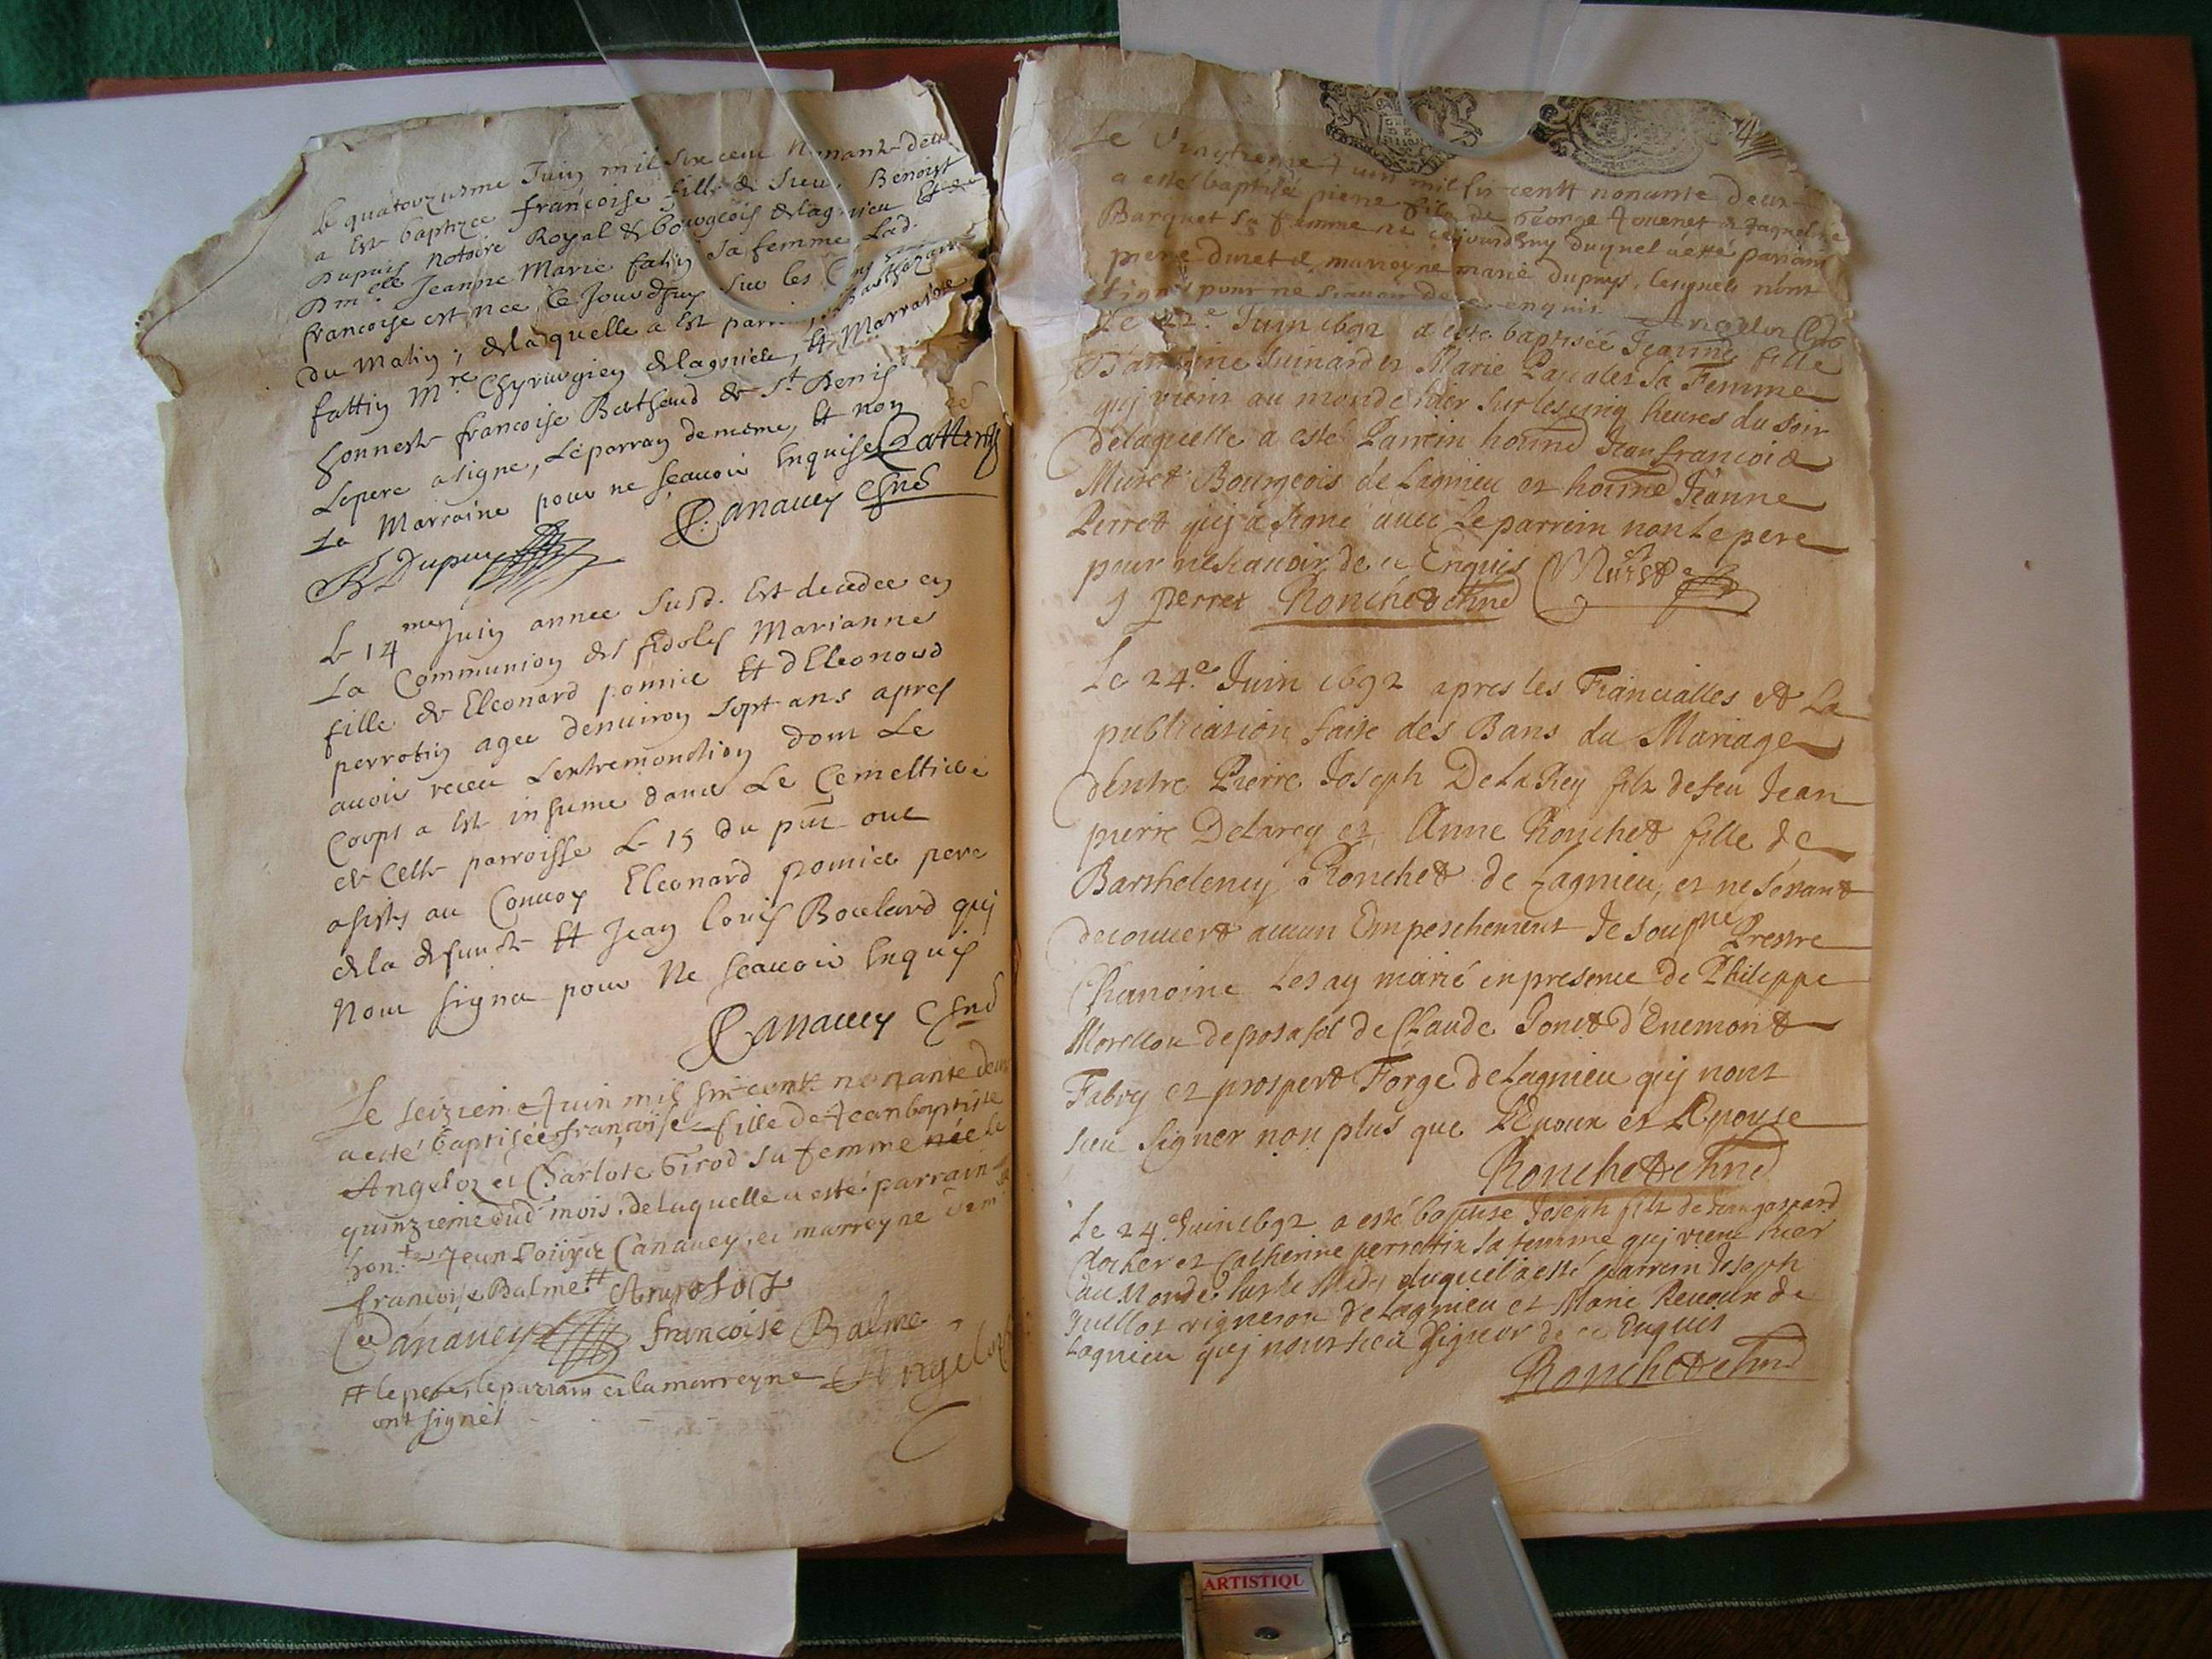 Le quatorziesme Juin mil six cent nonante deux
a est baptizee francoise fille de sieur Benoist
Dupuis notoire Royal & bourgeois delagnieu Et de
Dm.elle Jeanne Marie fatin sa femme Lad.
francoise est nee ce Jourdhuy sur les cinq
du matin, delaquelle a est
fattin Mre Chyrurgien delagnieu, Et Marraine
honneste francoise Berthaud de St Denis
Lepere a signe, Le parrain de mesme, Et non
La Marraine pour ne scavoir Enquise Fattin
Canavey Chne
B Dupuis
Le 14 me Juin annee susd. Est decedee en
La Communion des fidoles Marianne
fille de Eleonard pomice Et dEleonord
perrotin agee denuiron sept ans apres
auoir receu Lextremonction dont Le
Corps a est inhume dans Le Cemeltiere
de Cette parroisse Le 15 du pnt ont
asistes au Conuoy Eleonard pomice pere
de la defuncte Et Jean louis Boulard qui
Nont signe pour Ne scauoir Enquis
Canauey Chne
Le seizieme Juin mil six centz nonante deux
a esté baptisée françoise fille de Jean baptiste
Angeloz et Charlote Girod sa femme née le
quinzieme dud mois, de laquelle a esté parrain
hon. Jean Louys Canauey, et marreyne
francoise Balme #
Canauey francoise Balme
# le pere, le parrain et la marreyne Angeloz
ont signés
4
Le Vingtieme Juin mil six centz nonante deux
a esté baptisé pierre filz de George Jouenet & Jaqueline
Barquet sa femme né cejourdhuy duquel a esté parain
pierre duret & marreyne marie dupuys, lesquels n'ont
signé pour ne scauoir de ce enquis Angeloz Chne
Le 22.e Juin 1692 a esté baptisée Jeanne fille
D'antoine Suinard et Marie Pascalet sa Femme
quj vient au monde hier sur les cinq heures du soir
delaquelle a esté Parrein honne Jean francois
Muret Bourgeois de Lagnieu et honne Jeanne
Perret quj a signé auec Le parrein non Le pere
pour ne scauoir de ce Enquis Muret
J perret Ronchet chne
Le 24.e Juin 1692 apres les Fiancialles et La
publication faite des Bans du Mariage
d'entre Pierre Joseph De La Rey filz de feu Jean
pierre Delarey et Anne Ronchet fille de
Barthelemy Ronchet de Lagnieu, et ne s'etant
decouuert aucun Empeschement Je sousne Prestre
Chanoine Les ay marié en presence de Philippe
Morellon de posafol de Claude Gonet d'Enemont
Fabry et prospert Forge de Lagnieu quj nont
sceu signer non plus que L'Epoux et L'Epouse
Ronchet chne
Le 24.e Juin 1692 a esté baptise Joseph filz de Jean gaspard
Clocher et Catherine perrottin sa femme quj vient hier
au Monde sur le Midy, duquel a esté parrein Joseph
Guillot vigneron de Lagnieu et Marie Reuoux de
Lagnieu quj nont sceu signer de ce Enquis
Ronchet chne
ARTISTIQU